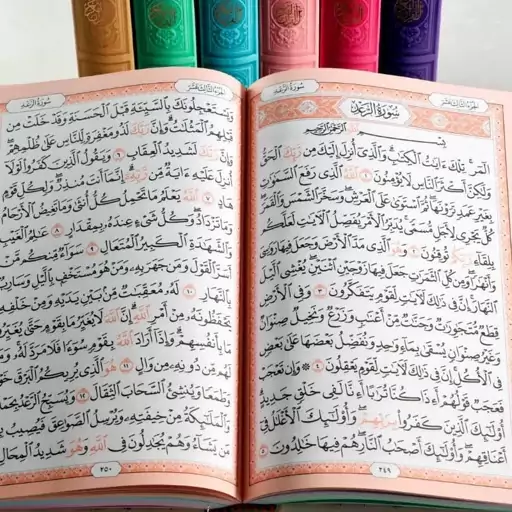 الجزء الثالث عشر
سورة الرعد
سُورَةُ الرَّعْدِ
بِسْمِ اللَّهِ الرَّحْمَٰنِ الرَّحِيمِ
الٓمٓر ۚ تِلْكَ ءَايَٰتُ الْكِتَٰبِ ۗ وَالَّذِىٓ أُنزِلَ إِلَيْكَ مِن رَّبِّكَ الْحَقُّ
وَلَٰكِنَّ أَكْثَرَ النَّاسِ لَا يُؤْمِنُونَ ١ اللَّهُ الَّذِى رَفَعَ السَّمَٰوَٰتِ
بِغَيْرِ عَمَدٍ تَرَوْنَهَا ۖ ثُمَّ اسْتَوَىٰ عَلَى الْعَرْشِ ۖ وَسَخَّرَ الشَّمْسَ وَالْقَمَرَ ۖ
كُلٌّ يَجْرِى لِأَجَلٍ مُّسَمًّى ۚ يُدَبِّرُ الْأَمْرَ يُفَصِّلُ الْءَايَٰتِ لَعَلَّكُم
بِلِقَآءِ رَبِّكُمْ تُوقِنُونَ ٢ وَهُوَ الَّذِى مَدَّ الْأَرْضَ وَجَعَلَ فِيهَا رَوَٰسِىَ
وَأَنْهَٰرًا ۖ وَمِن كُلِّ الثَّمَرَٰتِ جَعَلَ فِيهَا زَوْجَيْنِ اثْنَيْنِ ۖ يُغْشِى الَّيْلَ
النَّهَارَ ۚ إِنَّ فِى ذَٰلِكَ لَءَايَٰتٍ لِّقَوْمٍ يَتَفَكَّرُونَ ٣ وَفِى الْأَرْضِ
قِطَعٌ مُّتَجَٰوِرَٰتٌ وَجَنَّٰتٌ مِّنْ أَعْنَٰبٍ وَزَرْعٌ وَنَخِيلٌ صِنْوَانٌ
وَغَيْرُ صِنْوَانٍ يُسْقَىٰ بِمَآءٍ وَٰحِدٍ وَنُفَضِّلُ بَعْضَهَا عَلَىٰ بَعْضٍ
فِى الْأُكُلِ ۚ إِنَّ فِى ذَٰلِكَ لَءَايَٰتٍ لِّقَوْمٍ يَعْقِلُونَ ٤ ۞ وَإِن تَعْجَبْ
فَعَجَبٌ قَوْلُهُمْ أَءِذَا كُنَّا تُرَٰبًا أَءِنَّا لَفِى خَلْقٍ جَدِيدٍ ۗ
أُو۟لَٰٓئِكَ الَّذِينَ كَفَرُوا۟ بِرَبِّهِمْ ۖ وَأُو۟لَٰٓئِكَ الْأَغْلَٰلُ فِىٓ
أَعْنَاقِهِمْ ۖ وَأُو۟لَٰٓئِكَ أَصْحَٰبُ النَّارِ ۖ هُمْ فِيهَا خَٰلِدُونَ ٥
٢٤٩
الجزء الثالث عشر
سورة الرعد
وَيَسْتَعْجِلُونَكَ بِالسَّيِّئَةِ قَبْلَ الْحَسَنَةِ وَقَدْ خَلَتْ مِن
قَبْلِهِمُ الْمَثُلَٰتُ ۗ وَإِنَّ رَبَّكَ لَذُو مَغْفِرَةٍ لِّلنَّاسِ عَلَىٰ ظُلْمِهِمْ ۖ
وَإِنَّ رَبَّكَ لَشَدِيدُ الْعِقَابِ ٦ وَيَقُولُ الَّذِينَ كَفَرُوا۟ لَوْلَآ
أُنزِلَ عَلَيْهِ ءَايَةٌ مِّن رَّبِّهِۦٓ ۗ إِنَّمَآ أَنتَ مُنذِرٌ ۖ وَلِكُلِّ قَوْمٍ
هَادٍ ٧ اللَّهُ يَعْلَمُ مَا تَحْمِلُ كُلُّ أُنثَىٰ وَمَا تَغِيضُ الْأَرْحَامُ
وَمَا تَزْدَادُ ۖ وَكُلُّ شَىْءٍ عِندَهُۥ بِمِقْدَارٍ ٨ عَٰلِمُ الْغَيْبِ
وَالشَّهَٰدَةِ الْكَبِيرُ الْمُتَعَالِ ٩ سَوَآءٌ مِّنكُم مَّنْ
أَسَرَّ الْقَوْلَ وَمَن جَهَرَ بِهِۦ وَمَنْ هُوَ مُسْتَخْفٍۭ بِالَّيْلِ وَسَارِبٌۢ
بِالنَّهَارِ ١٠ لَهُۥ مُعَقِّبَٰتٌ مِّنۢ بَيْنِ يَدَيْهِ وَمِنْ خَلْفِهِۦ
يَحْفَظُونَهُۥ مِنْ أَمْرِ اللَّهِ ۗ إِنَّ اللَّهَ لَا يُغَيِّرُ مَا بِقَوْمٍ حَتَّىٰ يُغَيِّرُوا۟
مَا بِأَنفُسِهِمْ ۗ وَإِذَآ أَرَادَ اللَّهُ بِقَوْمٍ سُوٓءًا فَلَا مَرَدَّ لَهُۥ ۚ وَمَا
لَهُم مِّن دُونِهِۦ مِن وَالٍ ١١ هُوَ الَّذِى يُرِيكُمُ الْبَرْقَ خَوْفًا
وَطَمَعًا وَيُنشِئُ السَّحَابَ الثِّقَالَ ١٢ وَيُسَبِّحُ الرَّعْدُ بِحَمْدِهِۦ
وَالْمَلَٰٓئِكَةُ مِنْ خِيفَتِهِۦ وَيُرْسِلُ الصَّوَٰعِقَ فَيُصِيبُ بِهَا
مَن يَشَآءُ وَهُمْ يُجَٰدِلُونَ فِى اللَّهِ وَهُوَ شَدِيدُ الْمِحَالِ
٢٥٠